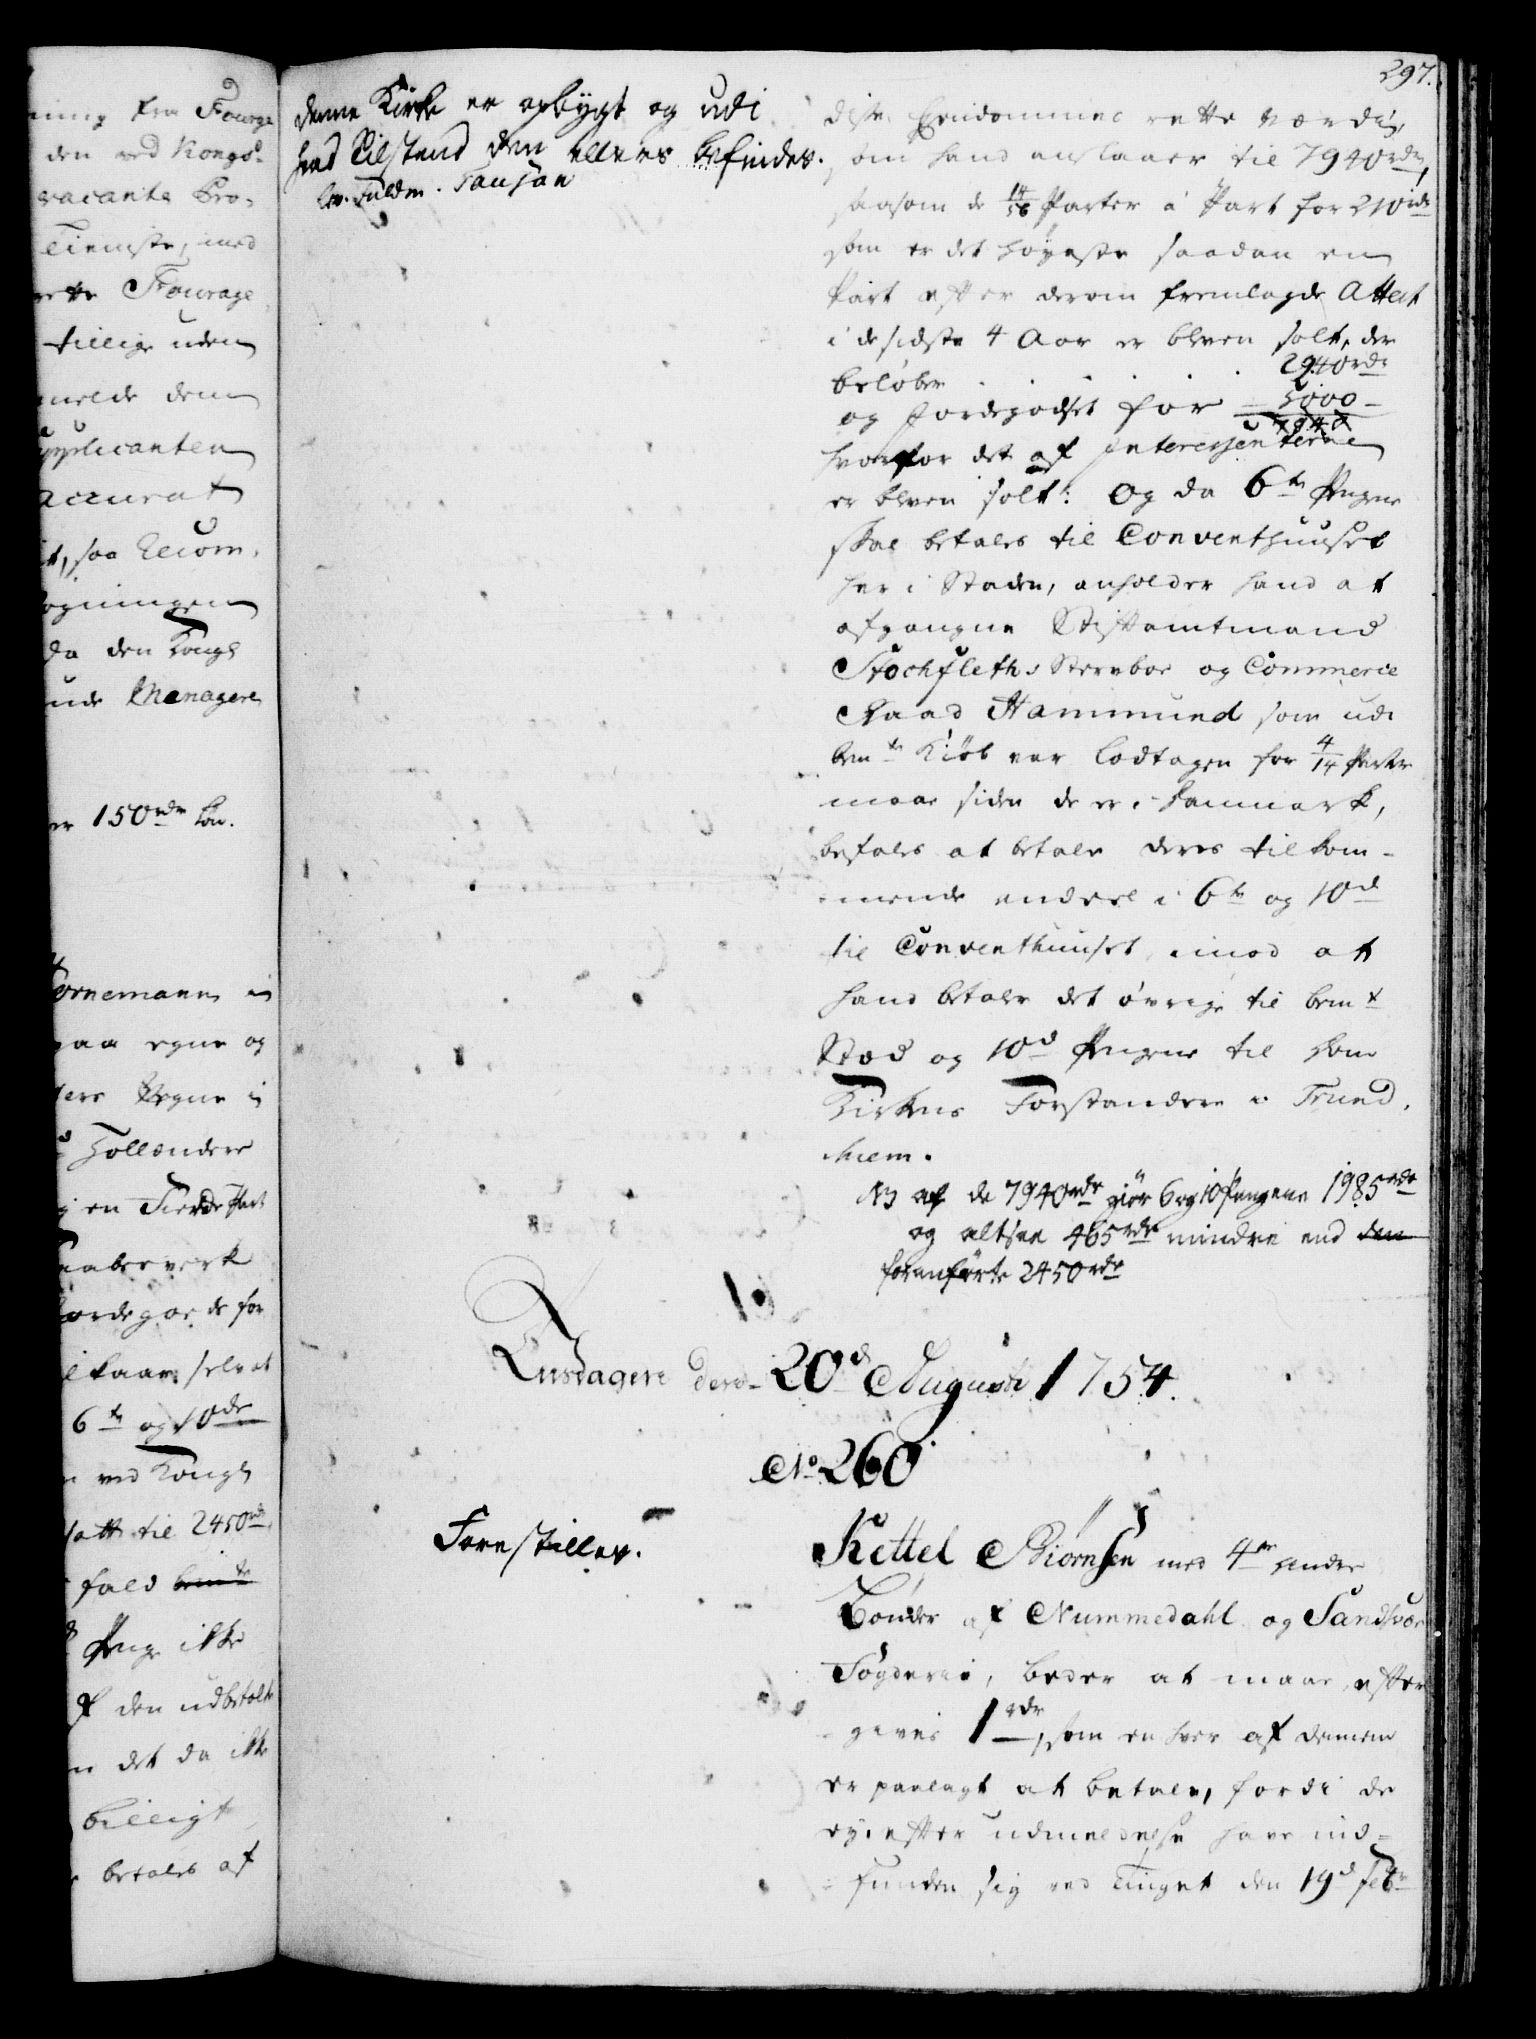 297.
ning fra Fourage
den ved Kongs-
vacante Pro-
Tieniste, med
rette Fourage
tillige uden
melde dem
Supplicanten
accurat
t, saa Recom-
ogningen
da den Kongl
ude Menagere
er 150 rdr
ornemann i
paa egne og
ders Vegne i
Hollendere
g en Fierde Part
aabeverk
ordegods for
6te og 10de
ved Kongl
satt til 2450 rdr
fald bemte
Penge ikke
f den udbetalte
n det da ikke
billigt
betales af
denne Kirke er opbygt og udi
hvad Tilstand den ellers befindes.
lev. Fuldm. Tausan
disse Eiendommes rette værdie,
som hand anslaaer til 7940 rdr,
saasom de 14/56 Parter á Part for 210 rdr
som er det høyeste saadan en
Part efter derom fremlagde Attest
i de sidste 4 Aar er bleven solt, der
beløber . . . . . 2940 rdr
og Jordegodset for - 5000 -
7940
hvorfor det af Interessenterne
er bleven solt: Og da 6te Pengene
skal betales til Conventhuuset
her i Staden, anholder hand at
afgangne Stiftamtmand
Stochfleths Stervboe og Commerce
Raad Hammund som udi
bemte Kiøb var lodtagen for 4/14 Parter
maae siden de er i Danmark,
befales at betale deres tilkom-
mende andeel i 6te og 10de
til Conventhuuset, imod at
hand betaler det øvrige til bemte
Stæd og 10de Pengene til Dom
Kirkens Forstandere i Trund-
hiem.
NB af de 7940 rdr giør 6 og 10 Pengene 1985 rdr
og altsaa 465 rdr mindre end den
foranførte 2450 rdr
Tirsdagen den 20de Augusti 1754.
No 260
Forestilles.
Kettel Biørnsen med 4re andre
Bønder af Nummedahl og Sandsvær
Fogderie, beder at maae efter-
gives 1 rdr, som en hver af dennem
er paalagt at betale, fordi de
ey efter udmeldelse have ind-
funden sig ved Tinget den 19de Febr